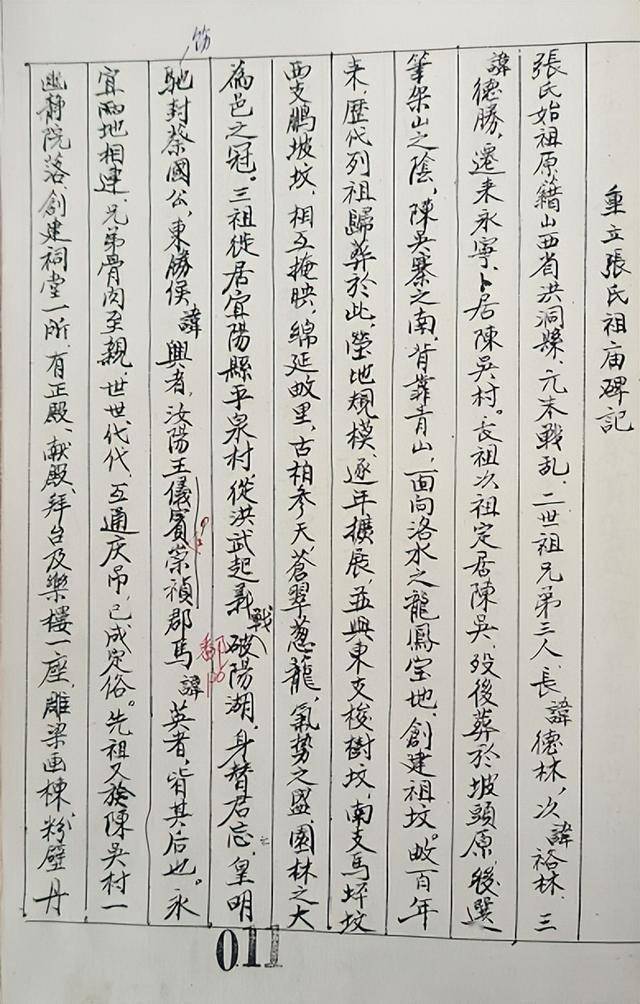 重立張氏祖庙碑記
張氏始祖原籍山西省洪洞縣，元末戰乱，二世祖兄弟三人，長諱德林，次諱裕林，三
諱德勝，遷来永寧，卜居陳吳村。長祖次祖定居陳吳，殁後葬於坡頭原，後選
筆架山之陰，陳吳寨之南，背靠青山，面向洛水之龍鳳宝地，創建祖坟。数百年
来，歷代列祖歸葬於此，塋地規模，逐年擴展，並與東支梭樹坟，南支馬坪坟
西支鵬坡坟，相互掩映，綿延数里，古柏參天，蒼翠葱蘢，氣势之盛，園林之大
為邑之冠。三祖徙居宜陽縣平泉村，從洪武起義戰破陽湖，身替君忘，皇明
鄱
馳封蔡國公，東勝侯，諱興者，汝陽王儀賓崇禎郡馬諱英者，皆其后也。永
宜兩地相連，兄弟骨肉至親，世世代代，互通庆吊，已成定俗。先祖又於陳吳村一
幽静院落，創建祠堂一所，有正殿、献殿、拜台及樂樓一座，雕梁画棟，粉壁丹
011